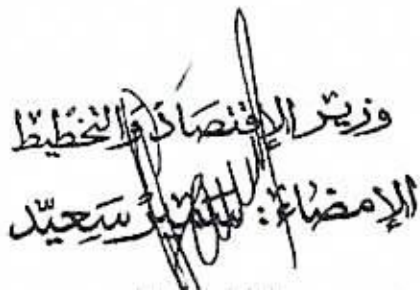 وزير الإقتصاد والتخطيط
الإمضاء: سمير سعيد